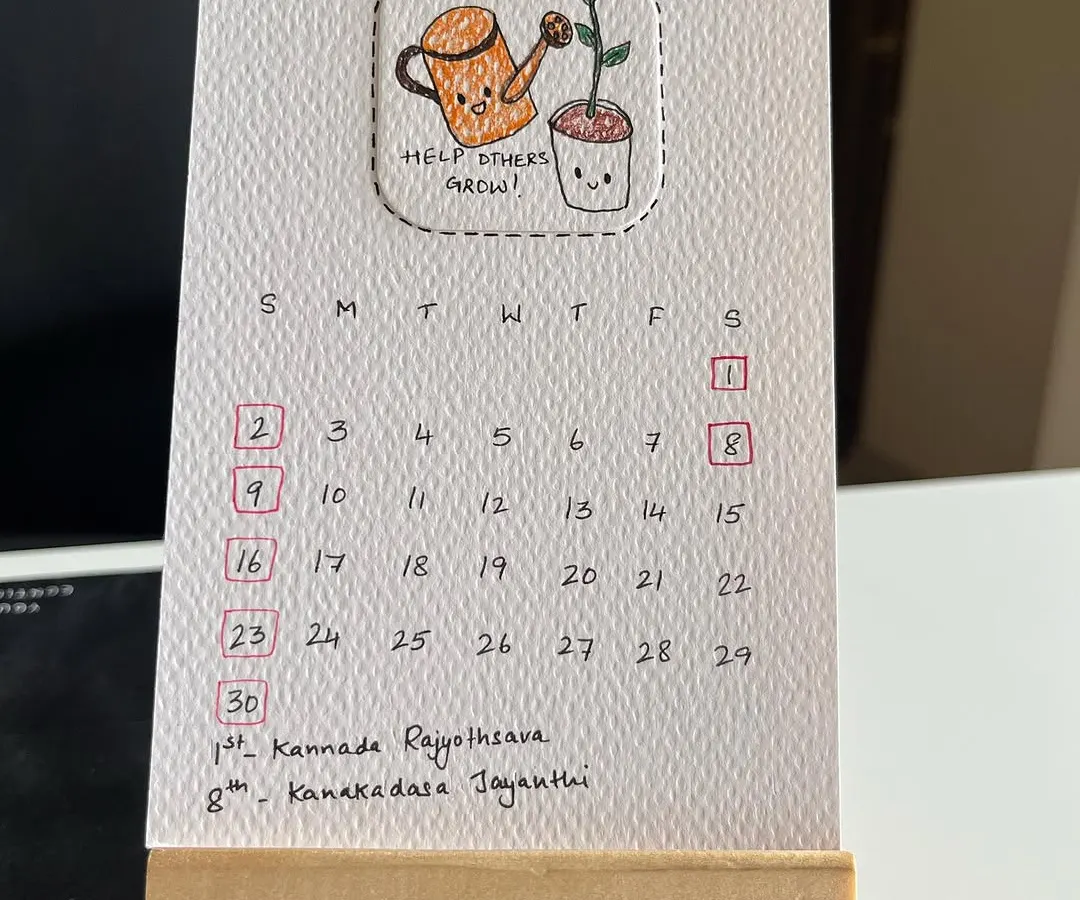 HELP OTHERS
GROW!
S M T W T F S
1
2 3 4 5 6 7 8
9 10 11 12 13 14 15
16 17 18 19 20 21 22
23 24 25 26 27 28 29
30
1st - Kannada Rajyothsava
8th - Kanakadasa Jayanthi